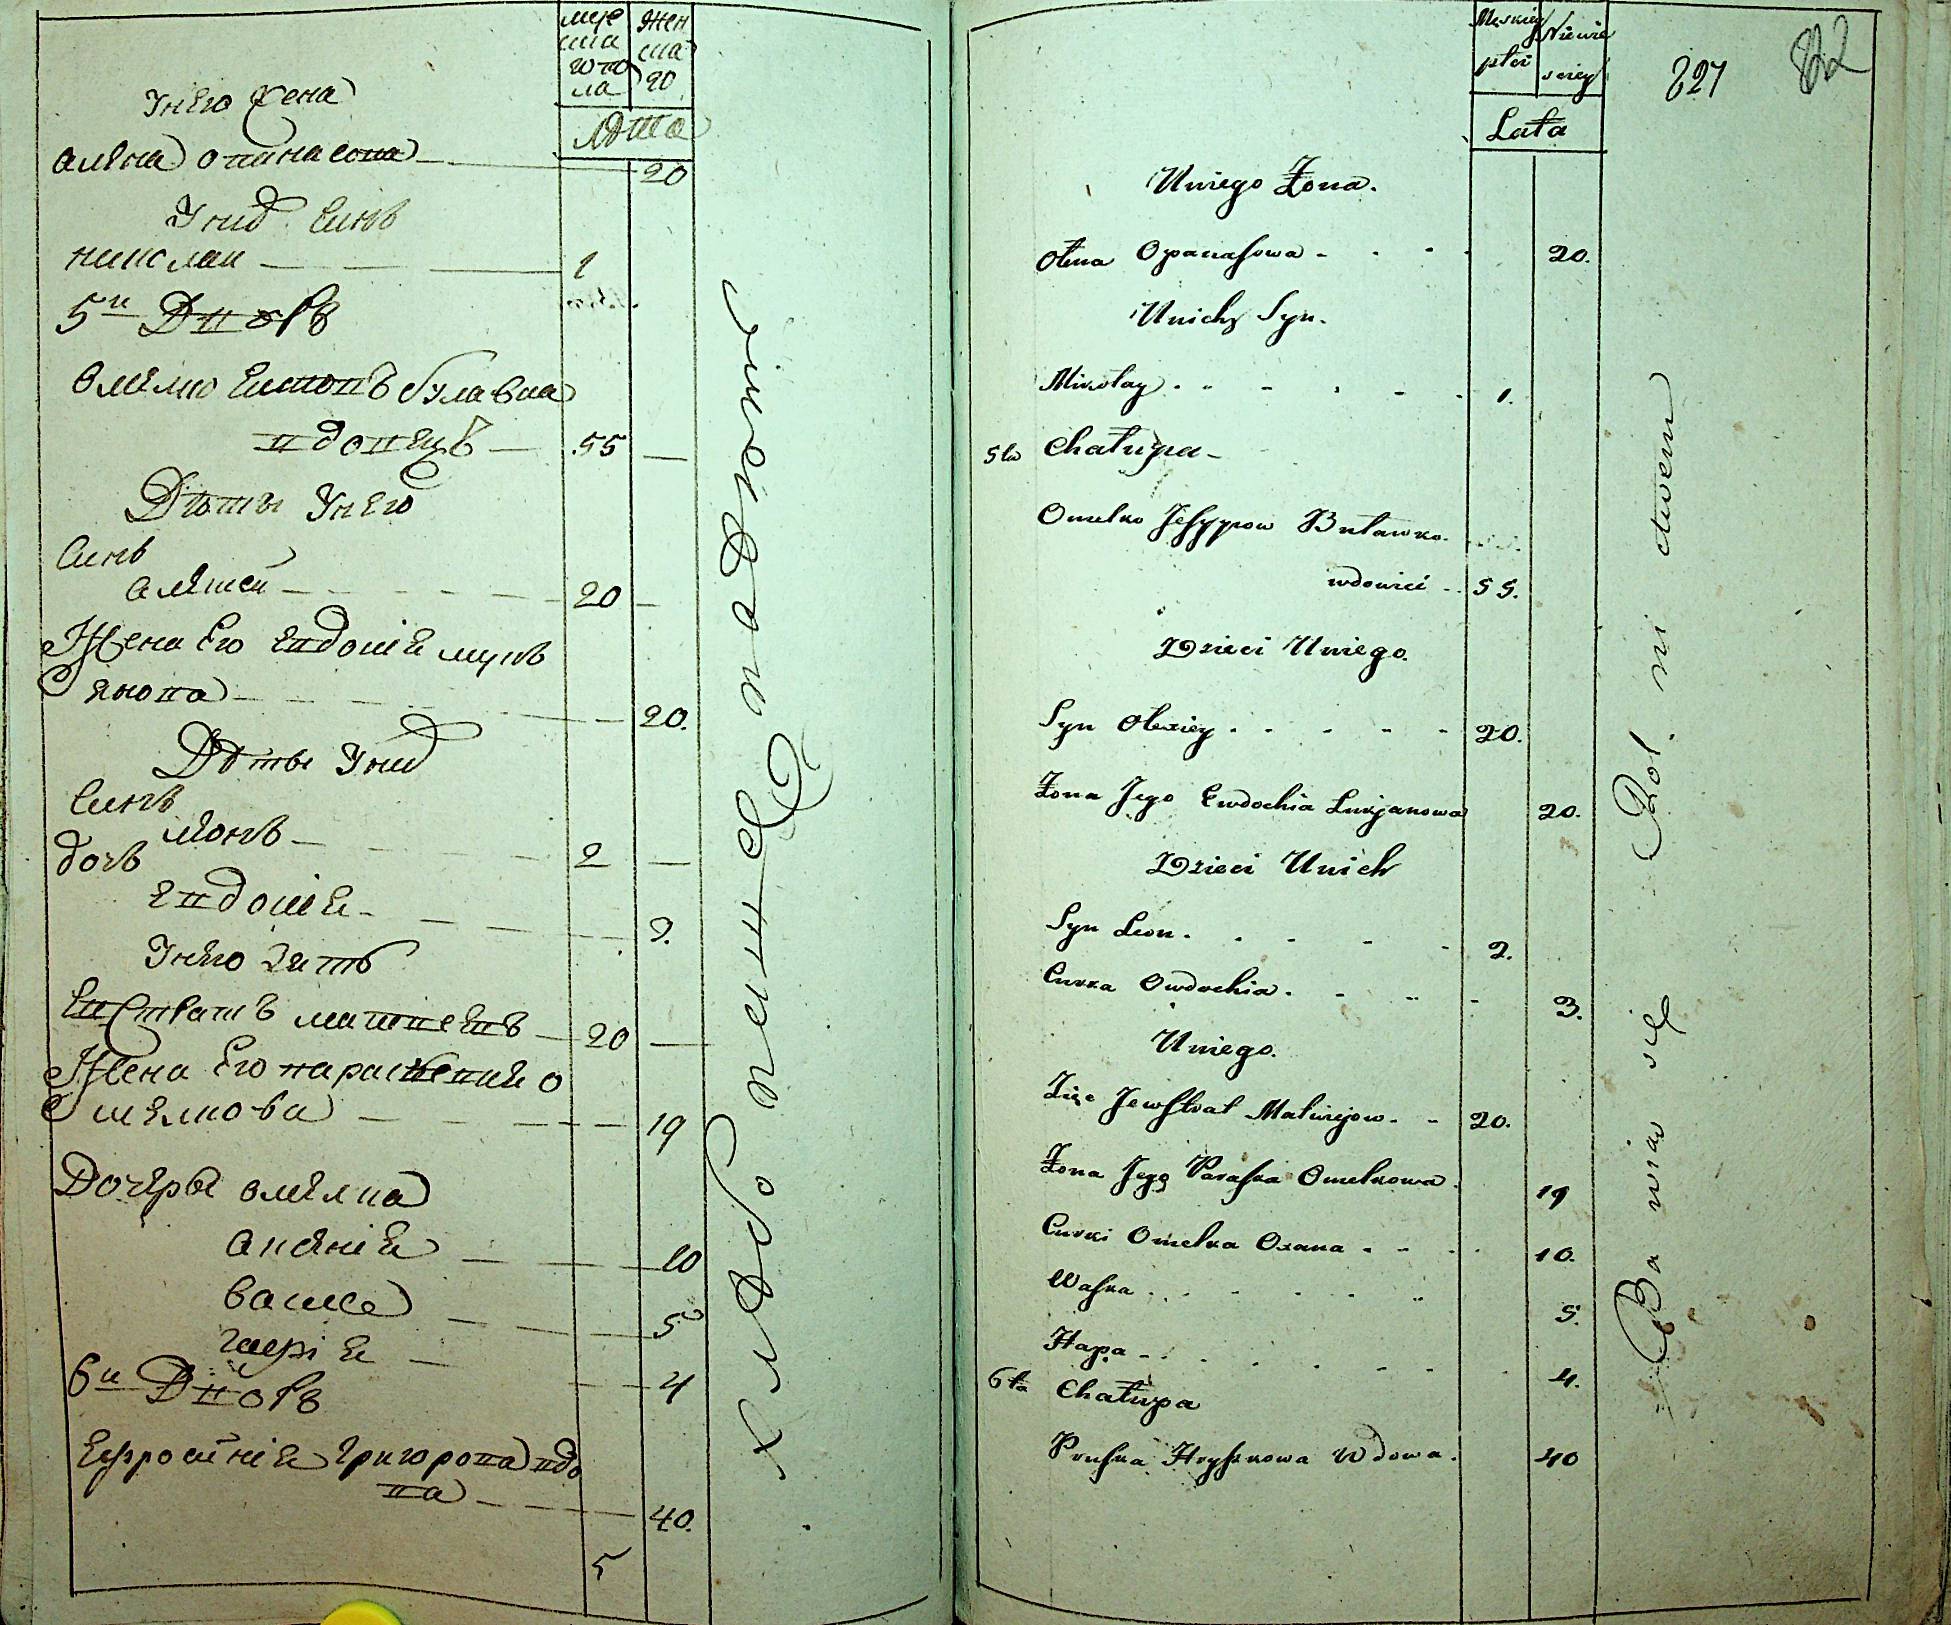 муе
ска
го по
ла
Жен
ска
го
Лѣта
Унего жена
алена опанасова 20
Уних Синъ
николаи 1
5и Дворъ
Омелко Есиповъ булавка
вдовецъ 55
Дѣты Унего
Синъ
алексей 20
Жена Его Евдокие лукъ
янова 20.
Дѣты Уних
Синъ
леонъ 2
дочъ
Евдокие 3.
Унего Зять
Евстратъ матвеевъ 20
Жена Его параскевие о
мелкова 19
Дочеры омелка
аксение 10
васка 5
гапие 4
6и Дворъ
Ефросиние Григорова вдо
ва 40.
5
хлѣбо пашественною
Męskiey
płci
Niewie
sciey
Lata
827
822
Uniego Żona.
Ołena Opanasowa 20.
Unich Syn.
Mikołay 1.
5ta Chałupa
Omelko Jesypow Buławko.
wdowiec 55.
Dzieci Uniego.
Syn Olexiey 20.
Żona Jego Ewdochia Lukjanowa 20.
Dzieci Unich
Syn Leon. 2.
Curka Owdochia. 3.
Uniego.
Zięc Jewstrat Matwiejow. 20.
Żona Jego Paraska Omelkowa. 19
Curki Omelka Oxana 10.
Waska 5.
Hapa 4.
6ta Chałupa
Pruska Hryszkowa Wdowa. 40
Bawiąw się Rolnictwem